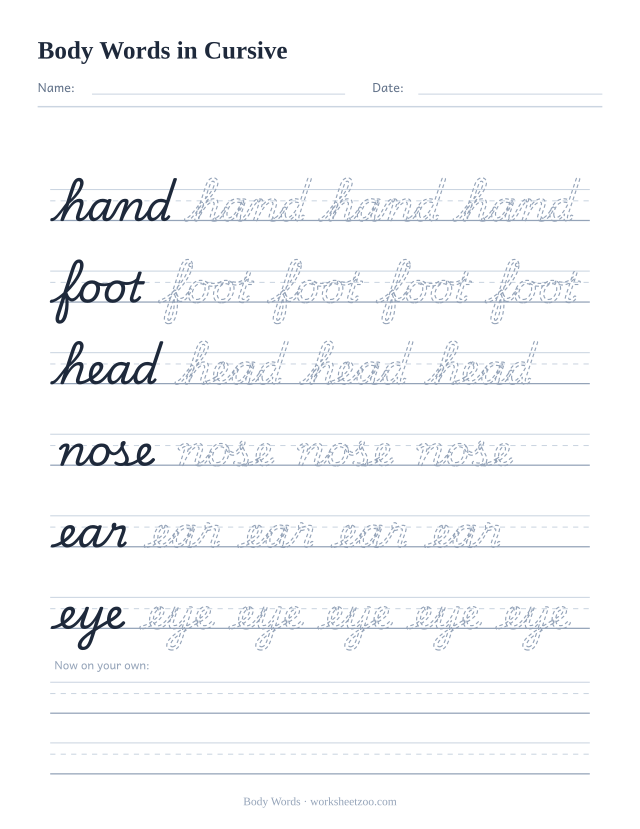 Body Words in Cursive
Name: Date:
hand hand hand hand
foot foot foot foot foot
head head head head
nose nose nose nose
ear ear ear ear ear
eye eye eye eye eye eye
Now on your own:
Body Words · worksheetzoo.com